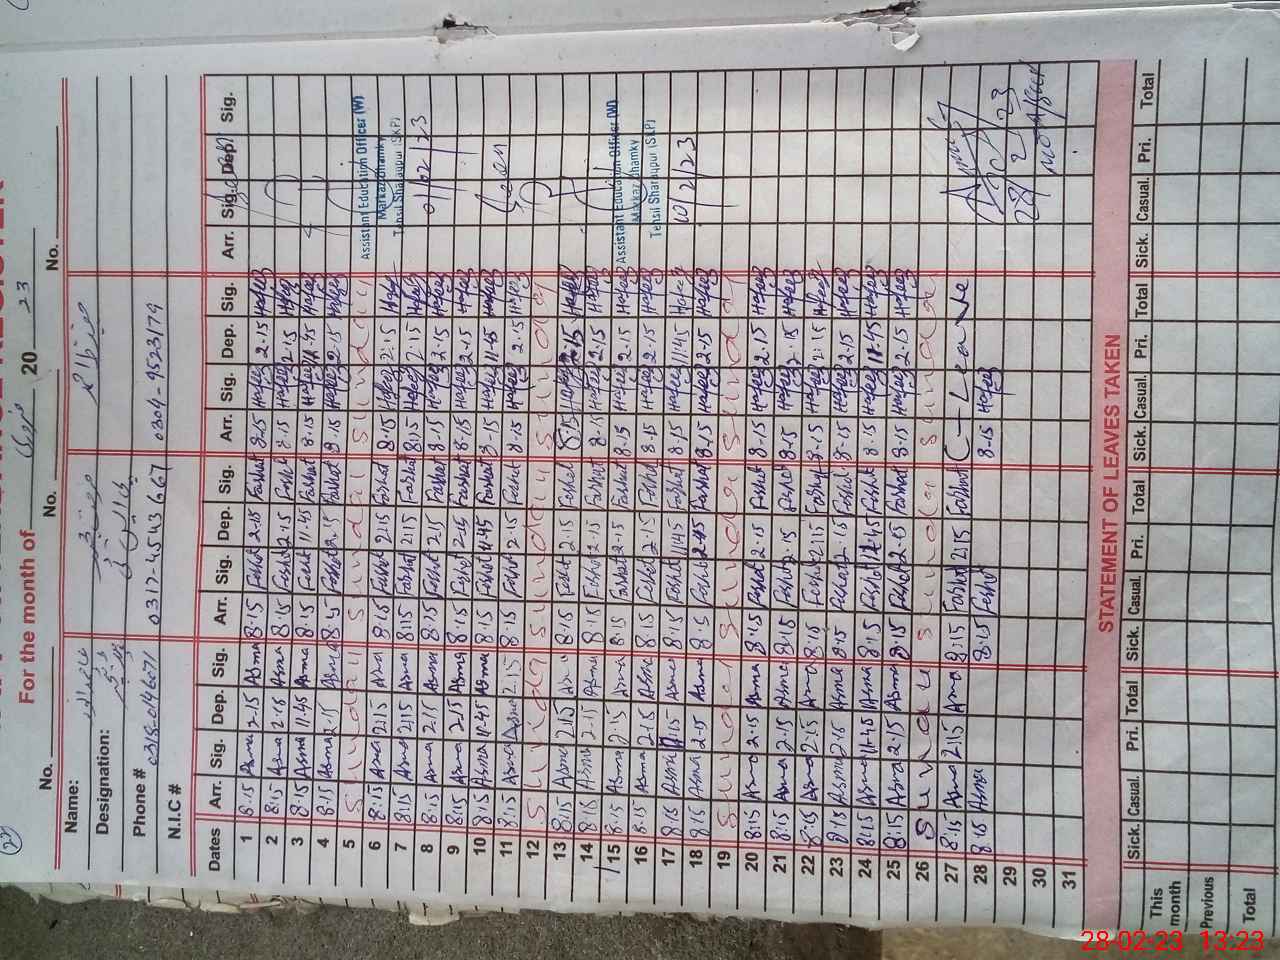 22
For the month of فروری 2023
No. No. No.
Name:
Designation:
Phone # 0317-4543667 0304-9523179
N.I.C #
Dates Arr. Sig. Dep. Sig. Arr. Sig. Dep. Sig. Arr. Sig. Dep. Sig. Arr. Sig. Dep. Sig.
1 8.15 Asma 2.15 Asma 8.15 Fashat 2.15 Fashat 8.15 Hafeez 2.15 Hafeez
2 8.15 Asma 2.15 Asma 8.15 Fashat 2.15 Fashat 8.15 Hafeez 2.15 Hafeez
3 8.15 Asma 11.45 Asma 8.15 Fashat 11.45 Fashat 8.15 Hafeez 11.45 Hafeez
4 8.15 Asma 2.15 Asma 8.15 Fashat 2.15 Fashat 8.15 Hafeez 2.15 Hafeez
5 Sunday Sunday Sunday
Assistant Education Officer (W)
6 8.15 Asma 2.15 Asma 8.15 Fashat 2.15 Fashat 8.15 Hafeez 2.15 Hafeez Markaz Dhamky
7 8.15 Asma 2.15 Asma 8.15 Fashat 2.15 Fashat 8.15 Hafeez 2.15 Hafeez Tehsil Sharaqpur (SKP)
8 8.15 Asma 2.15 Asma 8.15 Fashat 2.15 Fashat 8.15 Hafeez 2.15 Hafeez 01/02/23
9 8.15 Asma 2.15 Asma 8.15 Fashat 2.15 Fashat 8.15 Hafeez 2.15 Hafeez
10 8.15 Asma 11.45 Asma 8.15 Fashat 11.45 Fashat 8.15 Hafeez 11.45 Hafeez
11 8.15 Asma 2.15 8.15 Fashat 2.15 Fashat 8.15 2.15 Hafeez Seen
12 Sunday Sunday Sunday
13 8.15 Asma 2.15 Asma 8.15 Fashat 2.15 Fashat 8.15 Hafeez 2.15 Hafeez
14 8.15 Asma 2.15 Asma 8.15 Fashat 2.15 Fashat 8.15 Hafeez 2.15 Hafeez
15 8.15 Asma 2.15 Asma 8.15 Fashat 2.15 Fashat 8.15 Hafeez 2.15 Hafeez Assistant Education Officer (W)
16 8.15 Asma 2.15 Asma 8.15 Fashat 2.15 Fashat 8.15 Hafeez 2.15 Hafeez Markaz Dhamky
Tehsil Sharaqpur (SKP)
17 8.15 Asma 11.45 Asma 8.15 Fashat 11.45 Fashat 8.15 Hafeez 11.45 Hafeez
18 8.15 Asma 2.15 Asma 8.15 Fashat 2.15 Fashat 8.15 Hafeez 2.15 Hafeez 10/2/23
19 Sunday Sunday Sunday
20 8.15 Asma 2.15 Asma 8.15 Fashat 2.15 Fashat 8.15 Hafeez 2.15 Hafeez
21 8.15 Asma 2.15 Asma 8.15 Fashat 2.15 Fashat 8.15 Hafeez 2.15 Hafeez
22 8.15 Asma 2.15 Asma 8.15 Fashat 2.15 Fashat 8.15 Hafeez 2.15 Hafeez
23 8.15 Asma 2.15 Asma 8.15 Fashat 2.15 Fashat 8.15 Hafeez 2.15 Hafeez
24 8.15 Asma 11.45 Asma 8.15 Fashat 11.45 Fashat 8.15 Hafeez 11.45 Hafeez
25 8.15 Asma 2.15 Asma 8.15 Fashat 2.15 Fashat 8.15 Hafeez 2.15 Hafeez
26 Sunday Sunday Sunday
27 8.15 Asma 2.15 Asma 8.15 Fashat 2.15 Fashat C-Leave
28 8.15 Asma 8.15 Fashat 8.15 Hafeez
29 28/2/23
30
31
STATEMENT OF LEAVES TAKEN
Sick. Casual. Pri. Total Sick. Casual. Pri. Total Sick. Casual. Pri. Total Sick. Casual. Pri. Total
This month
Previous
Total
28-02-23 13:23